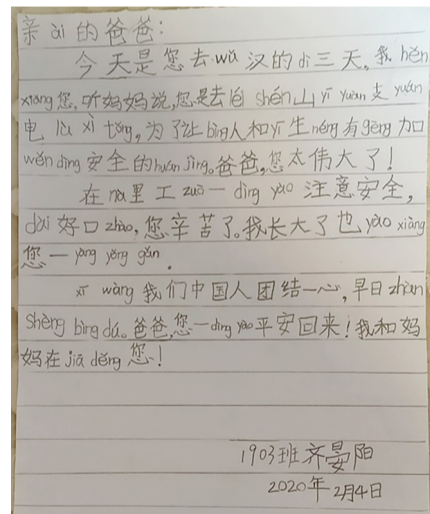 亲ài的爸爸：
今天是您去wǔ汉的dì三天，我hěn
xiǎng您，听妈妈说，您是去huǒ shén山yī yuàn支yuán
电lì xì tǒng，为了让bìng人和yī生néng有gèng加
wěn dìng安全的huán jìng。爸爸，您太伟大了！
在nà里工zuò一dìng yào注意安全，
dài好口zhào，您辛苦了。我长大了也yào xiàng
您一yàng yǒng gǎn.
xī wàng我们中国人团结一心，早日zhàn
shèng bìng dú。爸爸，您一dìng yào平安回来！我和妈
妈在jiā děng您！
1903班齐晏阳
2020年2月4日